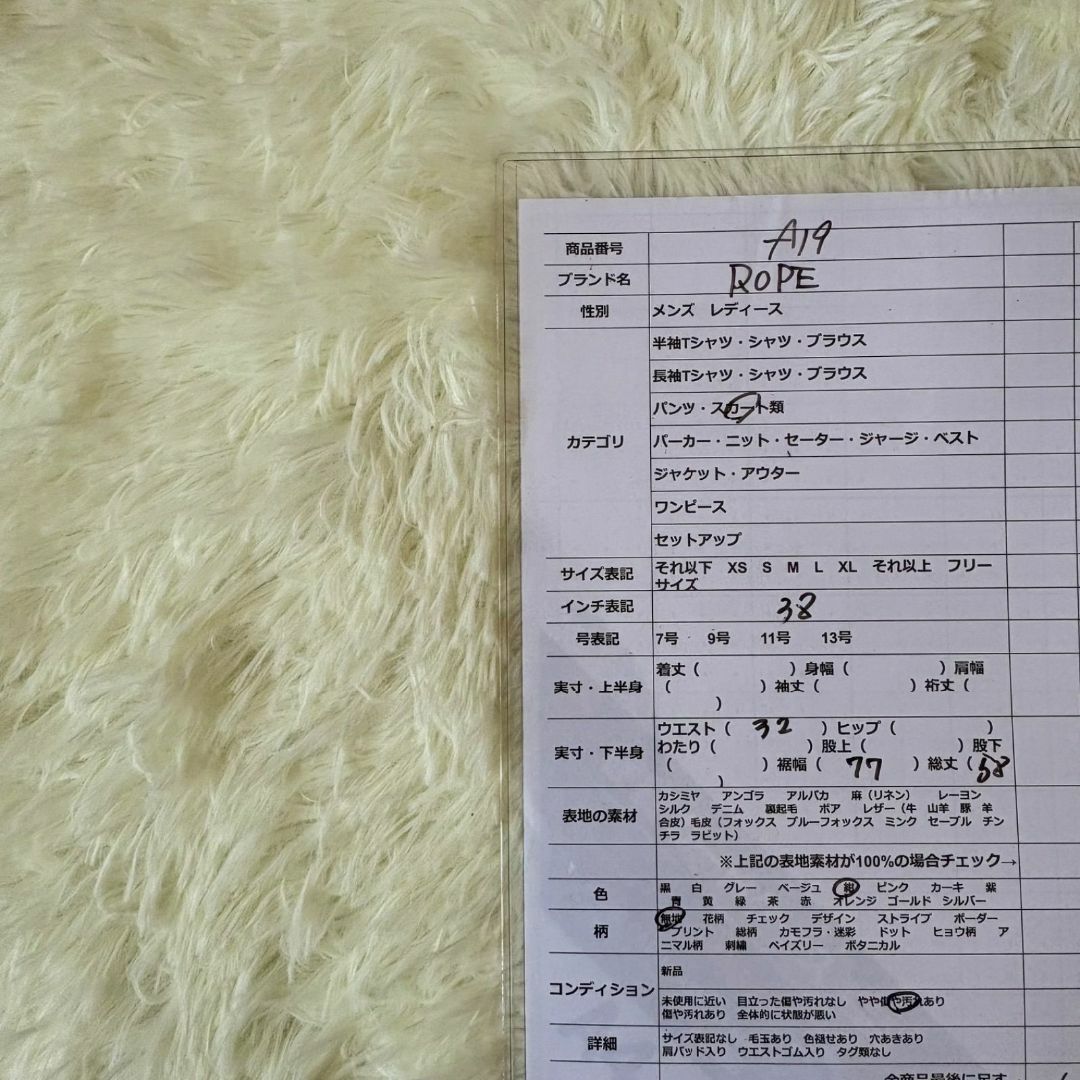 商品番号 A19
ブランド名 ROPE
性別 メンズ レディース
カテゴリ
半袖Tシャツ・シャツ・ブラウス
長袖Tシャツ・シャツ・ブラウス
パンツ・スカート類
パーカー・ニット・セーター・ジャージ・ベスト
ジャケット・アウター
ワンピース
セットアップ
サイズ表記 それ以下 XS S M L XL それ以上 フリー
サイズ
インチ表記 38
号表記 7号 9号 11号 13号
実寸・上半身 着丈（ ）身幅（ ）肩幅
（ ）袖丈（ ）裄丈（
）
実寸・下半身 ウエスト（ 32 ）ヒップ（ ）
わたり（ ）股上（ ）股下
（ ）裾幅（ 77 ）総丈（ 58
）
表地の素材 カシミヤ アンゴラ アルパカ 麻（リネン） レーヨン
シルク デニム 裏起毛 ボア レザー（牛 山羊 豚 羊
合皮）毛皮（フォックス ブルーフォックス ミンク セーブル チン
チラ ラビット）
※上記の表地素材が100%の場合チェック→
色 黒 白 グレー ベージュ 紺 ピンク カーキ 紫
青 黄 緑 茶 赤 オレンジ ゴールド シルバー
柄 無地 花柄 チェック デザイン ストライプ ボーダー
プリント 総柄 カモフラ・迷彩 ドット ヒョウ柄 ア
ニマル柄 刺繍 ペイズリー ボタニカル
コンディション 新品
未使用に近い 目立った傷や汚れなし やや傷や汚れあり
傷や汚れあり 全体的に状態が悪い
詳細 サイズ表記なし 毛玉あり 色褪せあり 穴あきあり
肩パッド入り ウエストゴム入り タグ類なし